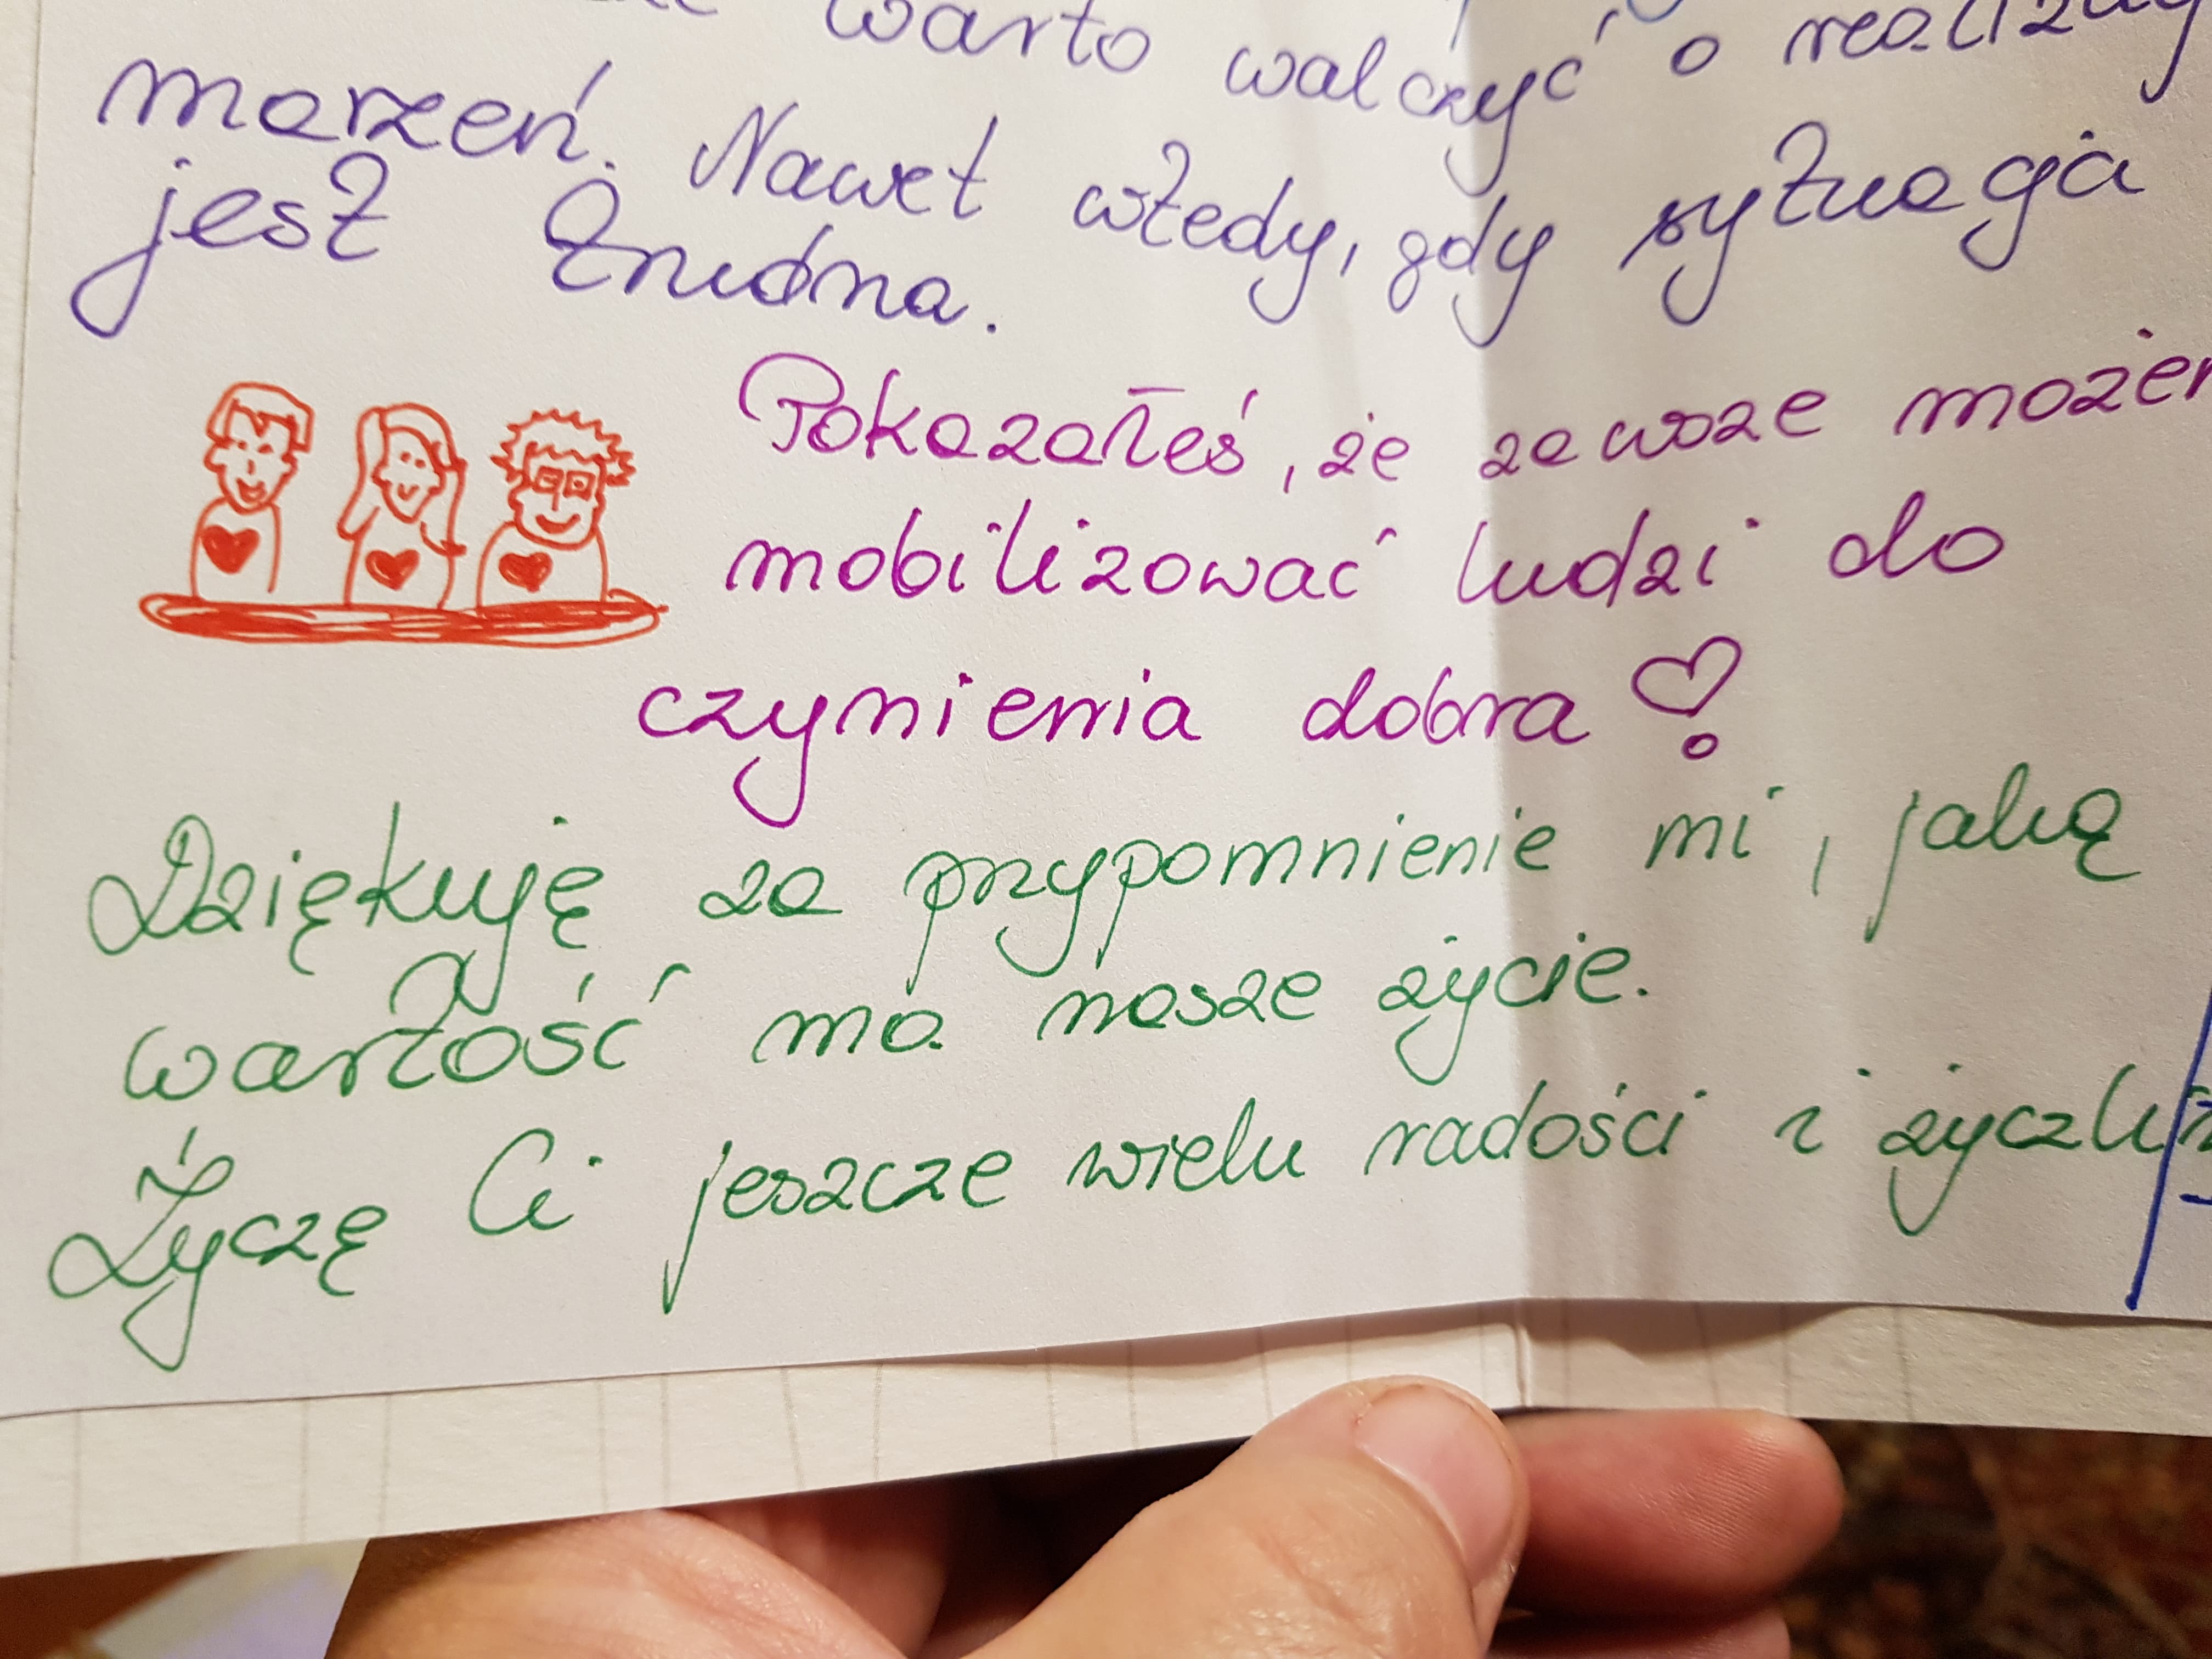 warto walczyć o realizacj
marzeń. Nawet wtedy, gdy sytuacja
jest trudna.
Pokazałeś, że zawsze możem
mobilizować ludzi do
czynienia dobra
Dziękuję za przypomnienie mi, jaką
wartość ma nasze życie.
Życzę Ci jeszcze wielu radości i życzli